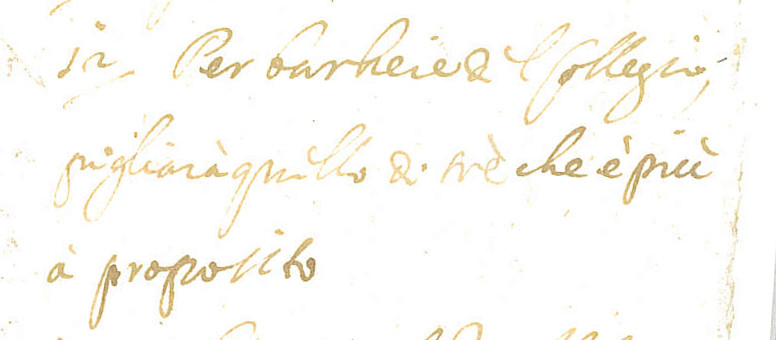 12 Per barbiere di Collegio,
pigliarà quello di trè che è più
à proposito